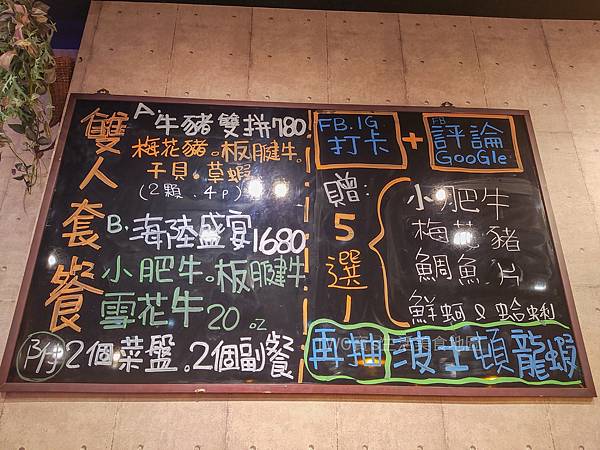 雙人套餐
A. 牛豬雙拼780.
梅花豬。板腱牛。
干貝.草蝦
(2顆、4p)
B. 海陸盛宴1680
小肥牛。板腱牛
雪花牛20oz
附 2個菜盤。2個副餐
FB.IG
打卡
+
FB
評論
GooGle
贈:5選1
小肥牛
梅花豬
鯛魚片
鮮蚵&蛤蜊
再抽 波士頓龍蝦